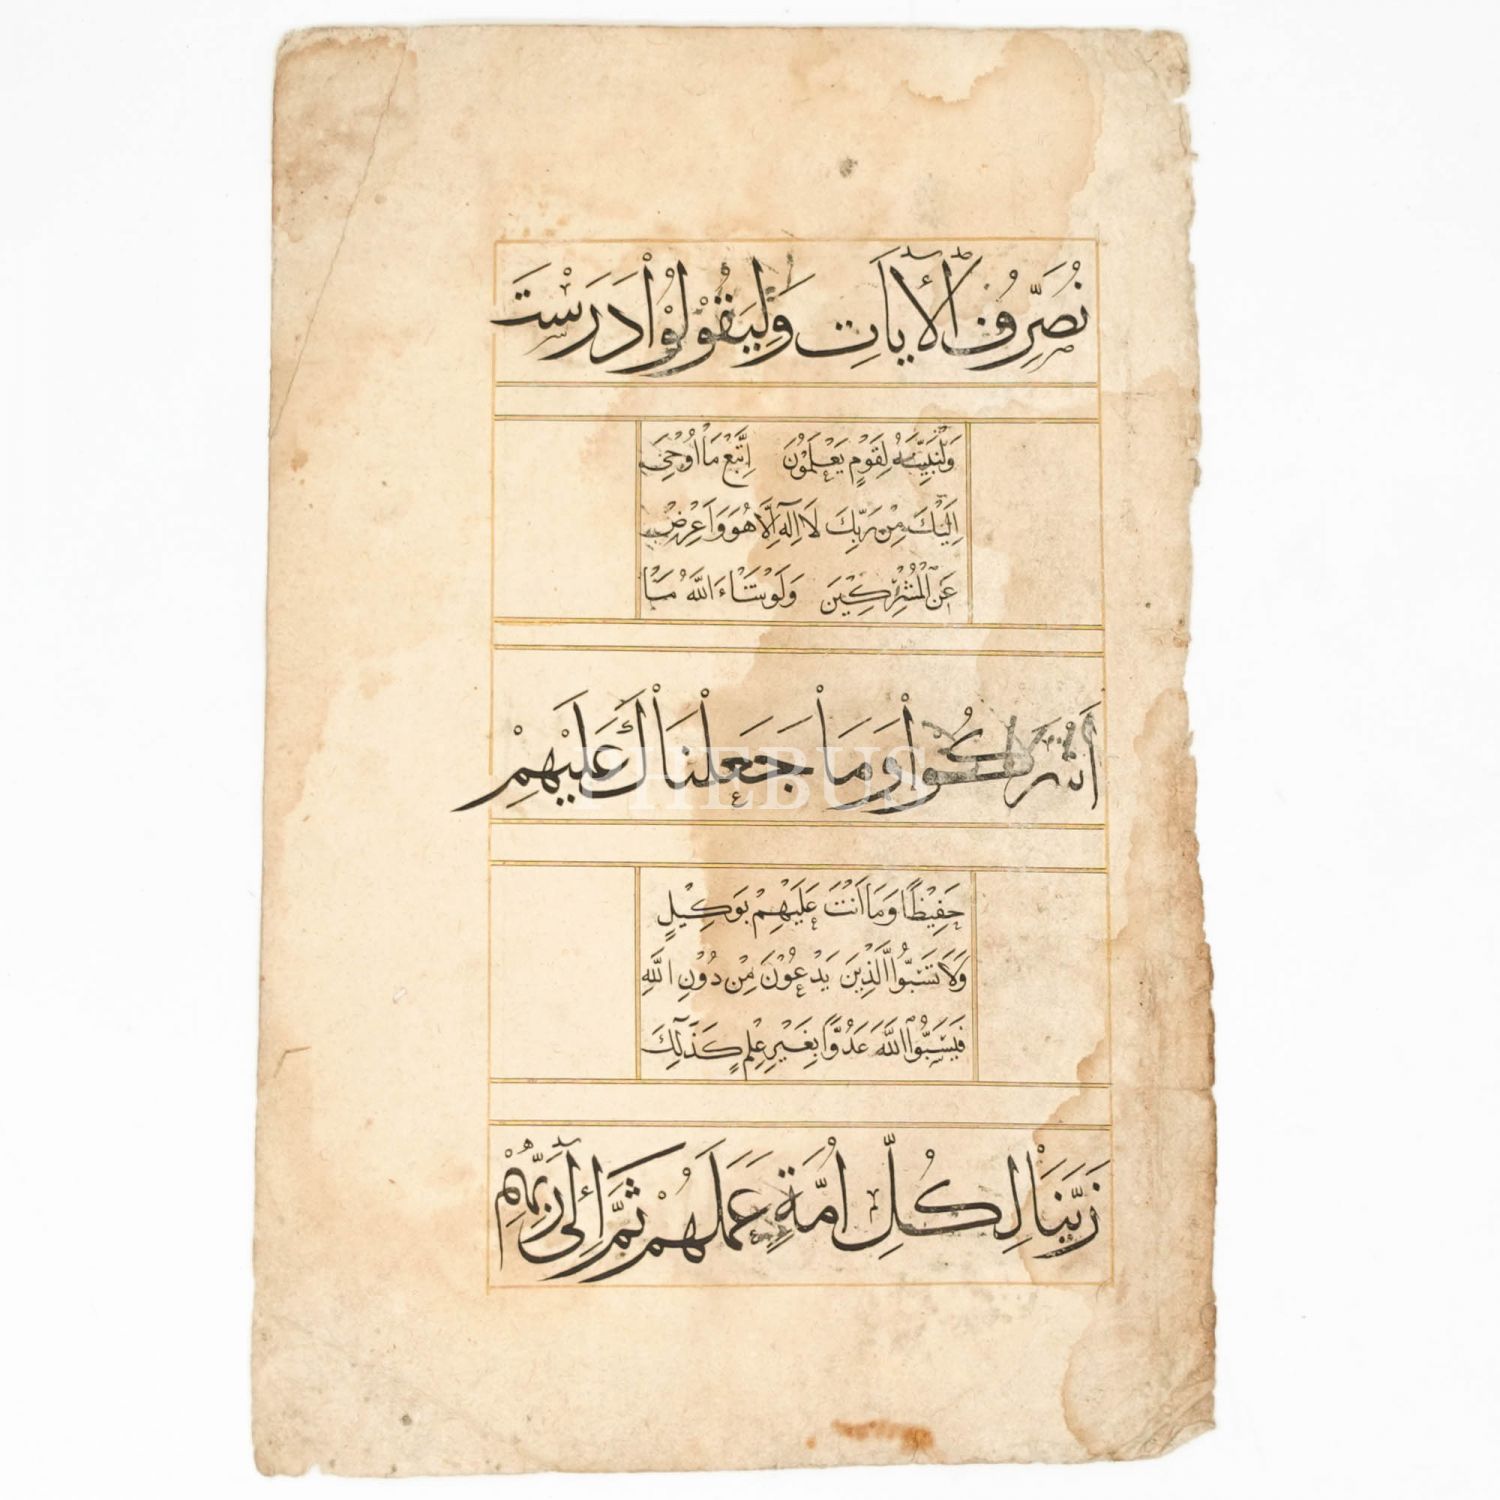 نُصَرِّفُ الْأٰيَاتِ وَلِيَقُوْلُوْا دَرَسْتَ
وَلِنُبَيِّنَهُ لِقَوْمٍ يَعْلَمُوْنَ اِتَّبِعْ مَا اُوْحِيَ
اِلَيْكَ مِنْ رَبِّكَ لَا اِلٰهَ اِلَّا هُوَ وَاَعْرِضْ
عَنِ الْمُشْرِكِيْنَ وَلَوْ شَاءَ اللّٰهُ مَا
اَشْرَكُوْا وَمَا جَعَلْنَاكَ عَلَيْهِمْ
حَفِيْظًا وَمَا اَنْتَ عَلَيْهِمْ بِوَكِيْلٍ
وَلَا تَسُبُّوا الَّذِيْنَ يَدْعُوْنَ مِنْ دُوْنِ اللّٰهِ
فَيَسُبُّوا اللّٰهَ عَدْوًا بِغَيْرِ عِلْمٍ كَذٰلِكَ
زَيَّنَّا لِكُلِّ اُمَّةٍ عَمَلَهُمْ ثُمَّ اِلٰى رَبِّهِمْ
PHEBUS